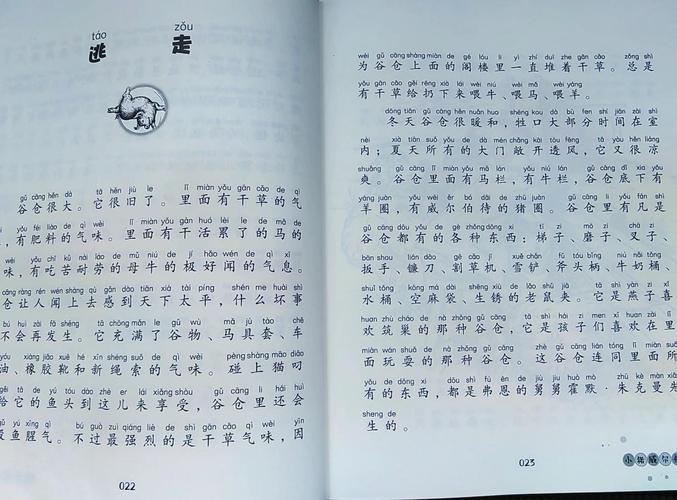 táo zǒu
逃 走
gǔ cāng hěn dà tā hěn jiù le lǐ miàn yǒu gān cǎo de qì
谷仓很大。它很旧了。里面有干草的气
yǒu féi liào de qì wèi lǐ miàn yǒu gàn huó lèi le de mǎ de
，有肥料的气味。里面有干活累了的马的
yǒu chī kǔ nài láo de mǔ niú de jí hǎo wén de qì xī
味，有吃苦耐劳的母牛的极好闻的气息。
cāng ràng rén wén shàng qù gǎn dào tiān xià tài píng shén me huài shì
仓让人闻上去感到天下太平，什么坏事
bú huì zài fā shēng tā chōng mǎn le gǔ wù mǎ jù tào chē
不会再发生。它充满了谷物、马具套、车
yóu xiàng jiāo xuē hé xīn shéng suǒ de qì wèi pèng shàng māo diāo
油、橡胶靴和新绳索的气味。碰上猫叼
gěi tā de yú tóu dào zhè er lái xiǎng shòu gǔ cāng lǐ hái huì
给它的鱼头到这儿来享受，谷仓里还会
yú xīng qì bú guò zuì qiáng liè de shì gān cǎo qì wèi yīn
鱼腥气。不过最强烈的是干草气味，因
022
wèi gǔ cāng shàng miàn de gé lóu lǐ yì zhí duī zhe gān cǎo zǒng shì
为谷仓上面的阁楼里一直堆着干草。总是
yǒu gān cǎo gěi rēng xià lái wèi niú wèi mǎ wèi yáng
有干草给扔下来喂牛、喂马、喂羊。
dōng tiān gǔ cāng hěn nuǎn huo shēng kou dà bù fen shí jiān zài shì
冬天谷仓很暖和，牲口大部分时间在室
nèi xià tiān suǒ yǒu de dà mén chǎng kāi tòu fēng tā yòu hěn liáng
内；夏天所有的大门敞开透风，它又很凉
shuǎng gǔ cāng lǐ miàn yǒu mǎ lán yǒu niú lán gǔ cāng dǐ xia yǒu
爽。谷仓里面有马栏，有牛栏，谷仓底下有
yáng juàn yǒu wēi ěr bó dāi de zhū juàn gǔ cāng lǐ yǒu fán shì
羊圈，有威尔伯待的猪圈。谷仓里有凡是
gǔ cāng dōu yǒu de gè zhǒng dōng xi tī zi mò zi chā zi
谷仓都有的各种东西：梯子、磨子、叉子、
bān shou lián dāo gē cǎo jī xuě chǎn fǔ tóu bǐng niú nǎi tǒng
扳手、镰刀、割草机、雪铲、斧头柄、牛奶桶、
shuǐ tǒng kōng má dài shēng xiù de lǎo shǔ jiā tā shì yàn zi xǐ
水桶、空麻袋、生锈的老鼠夹。它是燕子喜
huan zhù cháo de nà zhǒng gǔ cāng tā shì hái zi men xǐ huan zài lǐ
欢筑巢的那种谷仓，它是孩子们喜欢在里
miàn wán shuǎ de nà zhǒng gǔ cāng zhè gǔ cāng lián tóng lǐ miàn suǒ
面玩耍的那种谷仓。这谷仓连同里面所
yǒu de dōng xi dōu shì fú ēn de jiù jiu huò mò zhū kè màn xiān
有的东西，都是弗恩的舅舅霍默·朱克曼先
sheng de
生的。
023